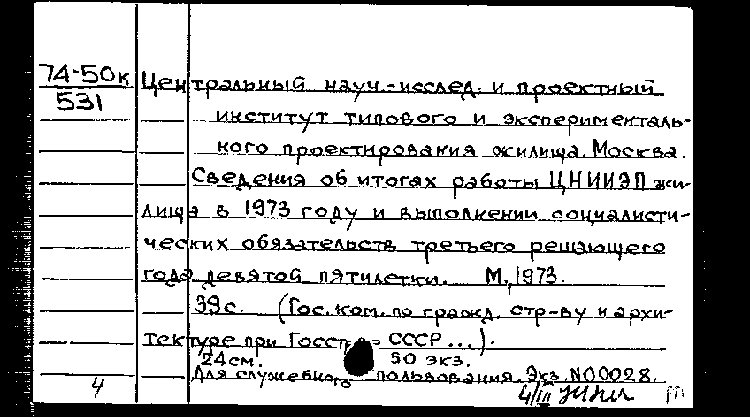 74-50к
531
Центральный науч.-исслед. и проектный
институт типового и эксперименталь-
ного проектирования жилища. Москва.
Сведения об итогах работы ЦНИИЭП жи-
лища в 1973 году и выполнении социалисти-
ческих обязательств третьего решающего
года девятой пятилетки. М., 1973.
39 с. (Гос. ком. по гражд. стр-ву и архи-
тектуре при Госстрое СССР...).
24 см. 50 экз.
Для служебного пользования. Экз. №00028.
4
4/III